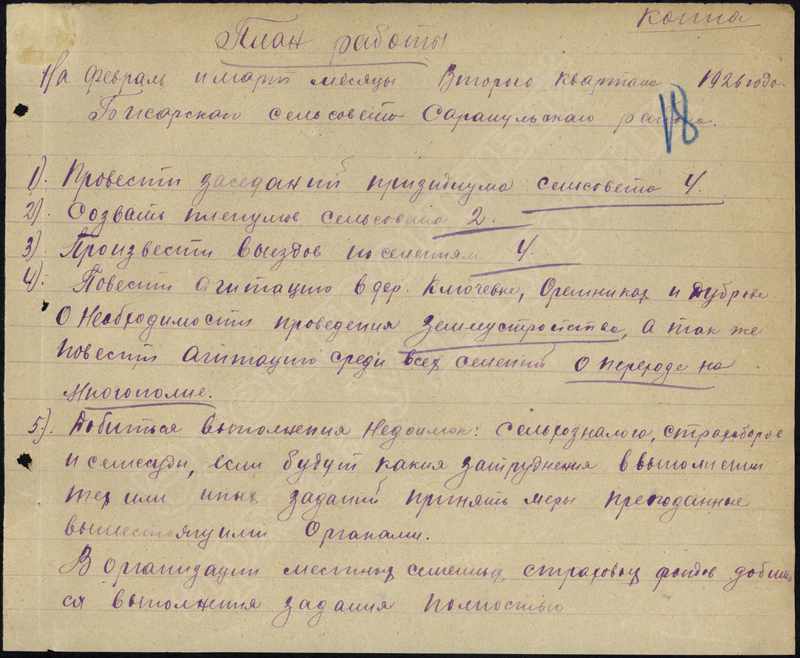 Копия
План работы
На февраль и март месяцы Второго квартала 1926 года
сельсовета Сарапульского района.
18
1). Провести заседаний призидиума сельсовета 4.
2). Созвать пленумов сельсовета 2.
3) Произвести выездов по селениям 4.
4). Повести агитацию в дер. Ключевке, Орешниках и Дуброве
о Необходимости проведения землеустройства, а так же
повести агитацию среди всех селений о переходе на
Многополие.
5). Добиться выполнения Недоимок: сельхозналога, страхсборов
и семссуды, если будут какия затруднения в выполнении
тех или иных заданий принять меры преподанные
вышестоящими Органами.
В Организации местных семенных, страховых фондов добить
ся выполнения задания полностью